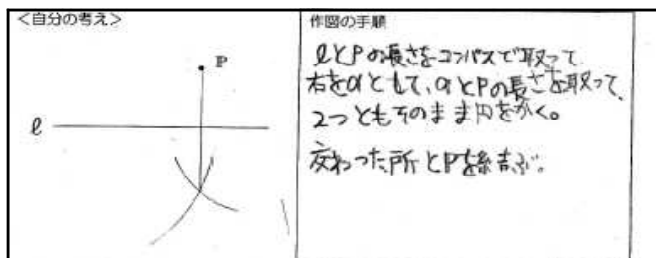 <自分の考え>
P
ℓ
作図の手順
ℓとPの長さをコンパスで取って
右をαとして、αとPの長さを取って、
2つともそのまま円をかく。
交わった所とPを結ぶ。